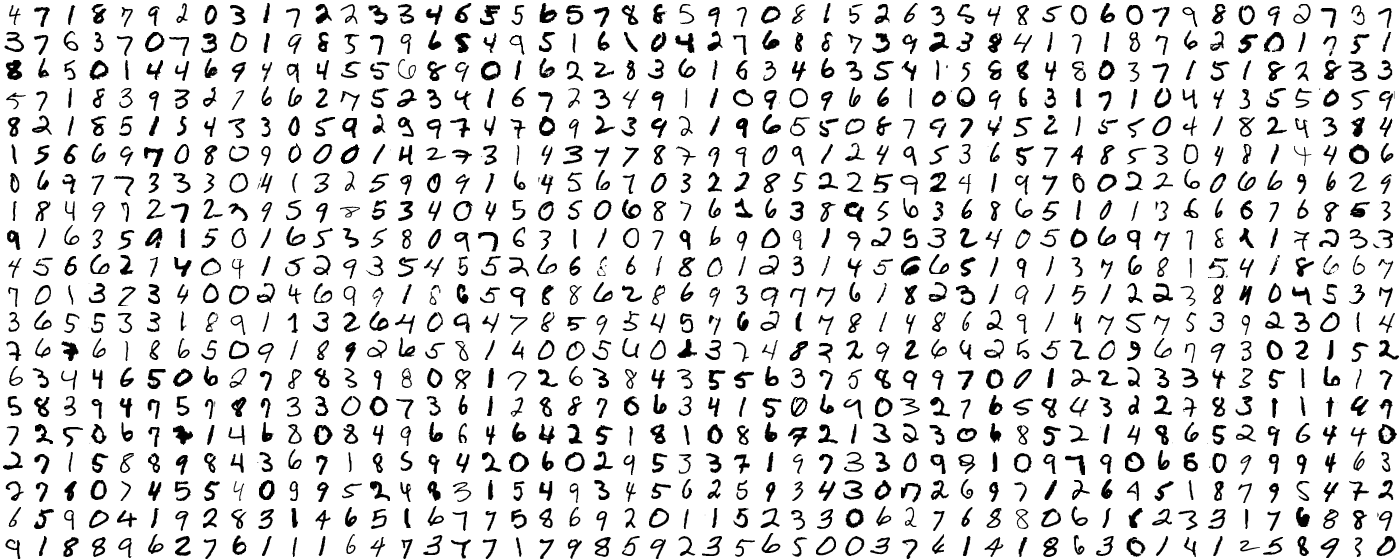 4 7 1 8 7 9 2 0 3 1 7 2 2 3 3 4 6 5 5 6 5 7 8 8 5 9 7 0 8 1 5 2 6 3 5 4 8 5 0 6 0 7 9 8 0 9 2 7 3 7
3 7 6 3 7 0 7 3 0 1 9 8 5 7 9 6 5 4 9 5 1 6 1 0 4 2 7 6 8 8 7 3 9 2 3 8 4 1 7 1 8 7 6 2 5 0 1 7 5 1
8 6 5 0 1 4 4 6 9 4 9 4 5 5 6 8 9 0 1 6 2 2 8 3 6 1 6 3 4 6 3 5 4 1 5 8 8 4 8 0 3 7 1 5 1 8 2 8 3 3
5 7 1 8 3 9 3 2 7 6 6 2 7 5 2 3 4 1 6 7 2 3 4 9 1 1 0 9 0 9 6 6 1 0 0 9 6 3 1 7 1 0 4 4 3 5 5 0 5 9
8 2 1 8 5 1 5 4 3 3 0 5 9 2 9 9 7 4 7 0 9 2 3 9 2 1 9 6 5 5 0 8 7 9 7 4 5 2 1 5 5 0 4 1 8 2 4 3 8 4
1 5 6 6 9 7 0 8 0 9 0 0 0 1 4 2 7 3 1 4 3 7 7 8 7 9 9 0 9 1 2 4 9 5 3 6 5 7 4 8 5 3 0 4 8 1 4 4 0 6
0 6 9 7 7 3 3 3 0 4 1 3 2 5 9 0 9 1 6 4 5 6 7 0 3 2 2 8 5 2 2 5 9 2 4 1 9 7 0 0 2 2 6 0 6 6 9 6 2 9
1 8 4 9 7 2 7 2 3 9 5 9 8 5 3 4 0 4 5 0 5 0 6 8 7 6 1 6 3 8 9 5 6 3 6 8 6 5 1 0 1 3 6 6 6 7 6 8 5 3
9 1 6 3 5 9 1 5 0 1 6 5 3 5 8 0 9 7 6 3 1 1 0 7 9 6 9 0 9 1 9 2 5 3 2 4 0 5 0 6 9 7 7 8 1 1 7 2 3 3
4 5 6 6 2 7 4 0 4 1 5 2 9 3 5 4 5 5 2 6 6 8 6 1 8 0 1 2 3 1 4 5 6 6 5 1 9 1 3 7 6 8 1 5 4 1 8 6 6 7
7 0 1 3 7 3 4 0 0 2 4 6 9 9 1 8 6 5 9 8 8 6 2 8 6 9 3 9 7 7 6 1 8 2 3 1 9 1 5 1 2 2 3 8 4 0 4 5 3 7
3 6 5 5 3 3 1 8 9 1 1 3 2 6 4 0 9 4 7 8 5 9 5 4 5 7 6 2 1 7 8 1 4 8 6 2 9 1 4 7 5 7 5 3 9 2 3 0 1 4
7 6 7 6 1 8 6 5 0 9 1 8 9 2 6 5 8 1 4 0 0 5 4 0 2 3 7 4 8 2 2 9 2 6 4 2 5 5 2 0 9 6 7 9 3 0 2 1 5 2
6 3 4 4 6 5 0 6 2 7 8 8 3 9 8 0 8 1 7 2 6 3 8 4 3 5 5 6 3 7 5 8 9 9 7 0 0 1 2 2 2 3 3 4 3 5 1 6 1 7
5 8 3 9 4 7 5 9 8 7 3 3 0 0 7 3 6 1 2 8 8 7 0 6 3 4 1 5 0 6 9 0 3 2 7 6 5 8 4 3 2 2 7 8 3 1 1 1 4 7
7 2 5 0 6 7 7 1 4 6 8 0 8 4 9 6 6 4 6 4 2 5 1 8 1 0 8 6 7 2 1 3 2 3 0 6 8 5 2 1 4 8 6 5 2 9 6 4 4 0
2 7 1 5 8 8 9 8 4 3 6 7 1 8 5 9 4 2 0 6 0 2 9 5 3 3 7 1 9 7 3 3 0 9 8 1 0 9 7 9 0 6 6 0 9 9 9 4 6 3
2 7 8 0 7 4 5 5 4 0 9 9 5 2 4 8 3 1 5 4 9 3 4 5 6 2 5 9 3 4 3 0 7 2 6 9 7 1 2 6 4 5 1 8 7 9 5 4 7 2
6 5 9 0 4 1 9 2 8 3 1 4 6 5 1 6 7 7 5 8 6 9 2 0 1 1 5 2 3 3 0 6 2 7 6 8 8 0 6 1 8 2 3 3 1 7 6 8 8 9
9 1 8 8 9 6 2 7 6 1 1 1 6 4 7 3 7 7 1 7 9 8 5 9 2 3 5 6 5 0 0 3 7 6 1 4 1 8 6 3 0 1 4 1 2 5 8 9 3